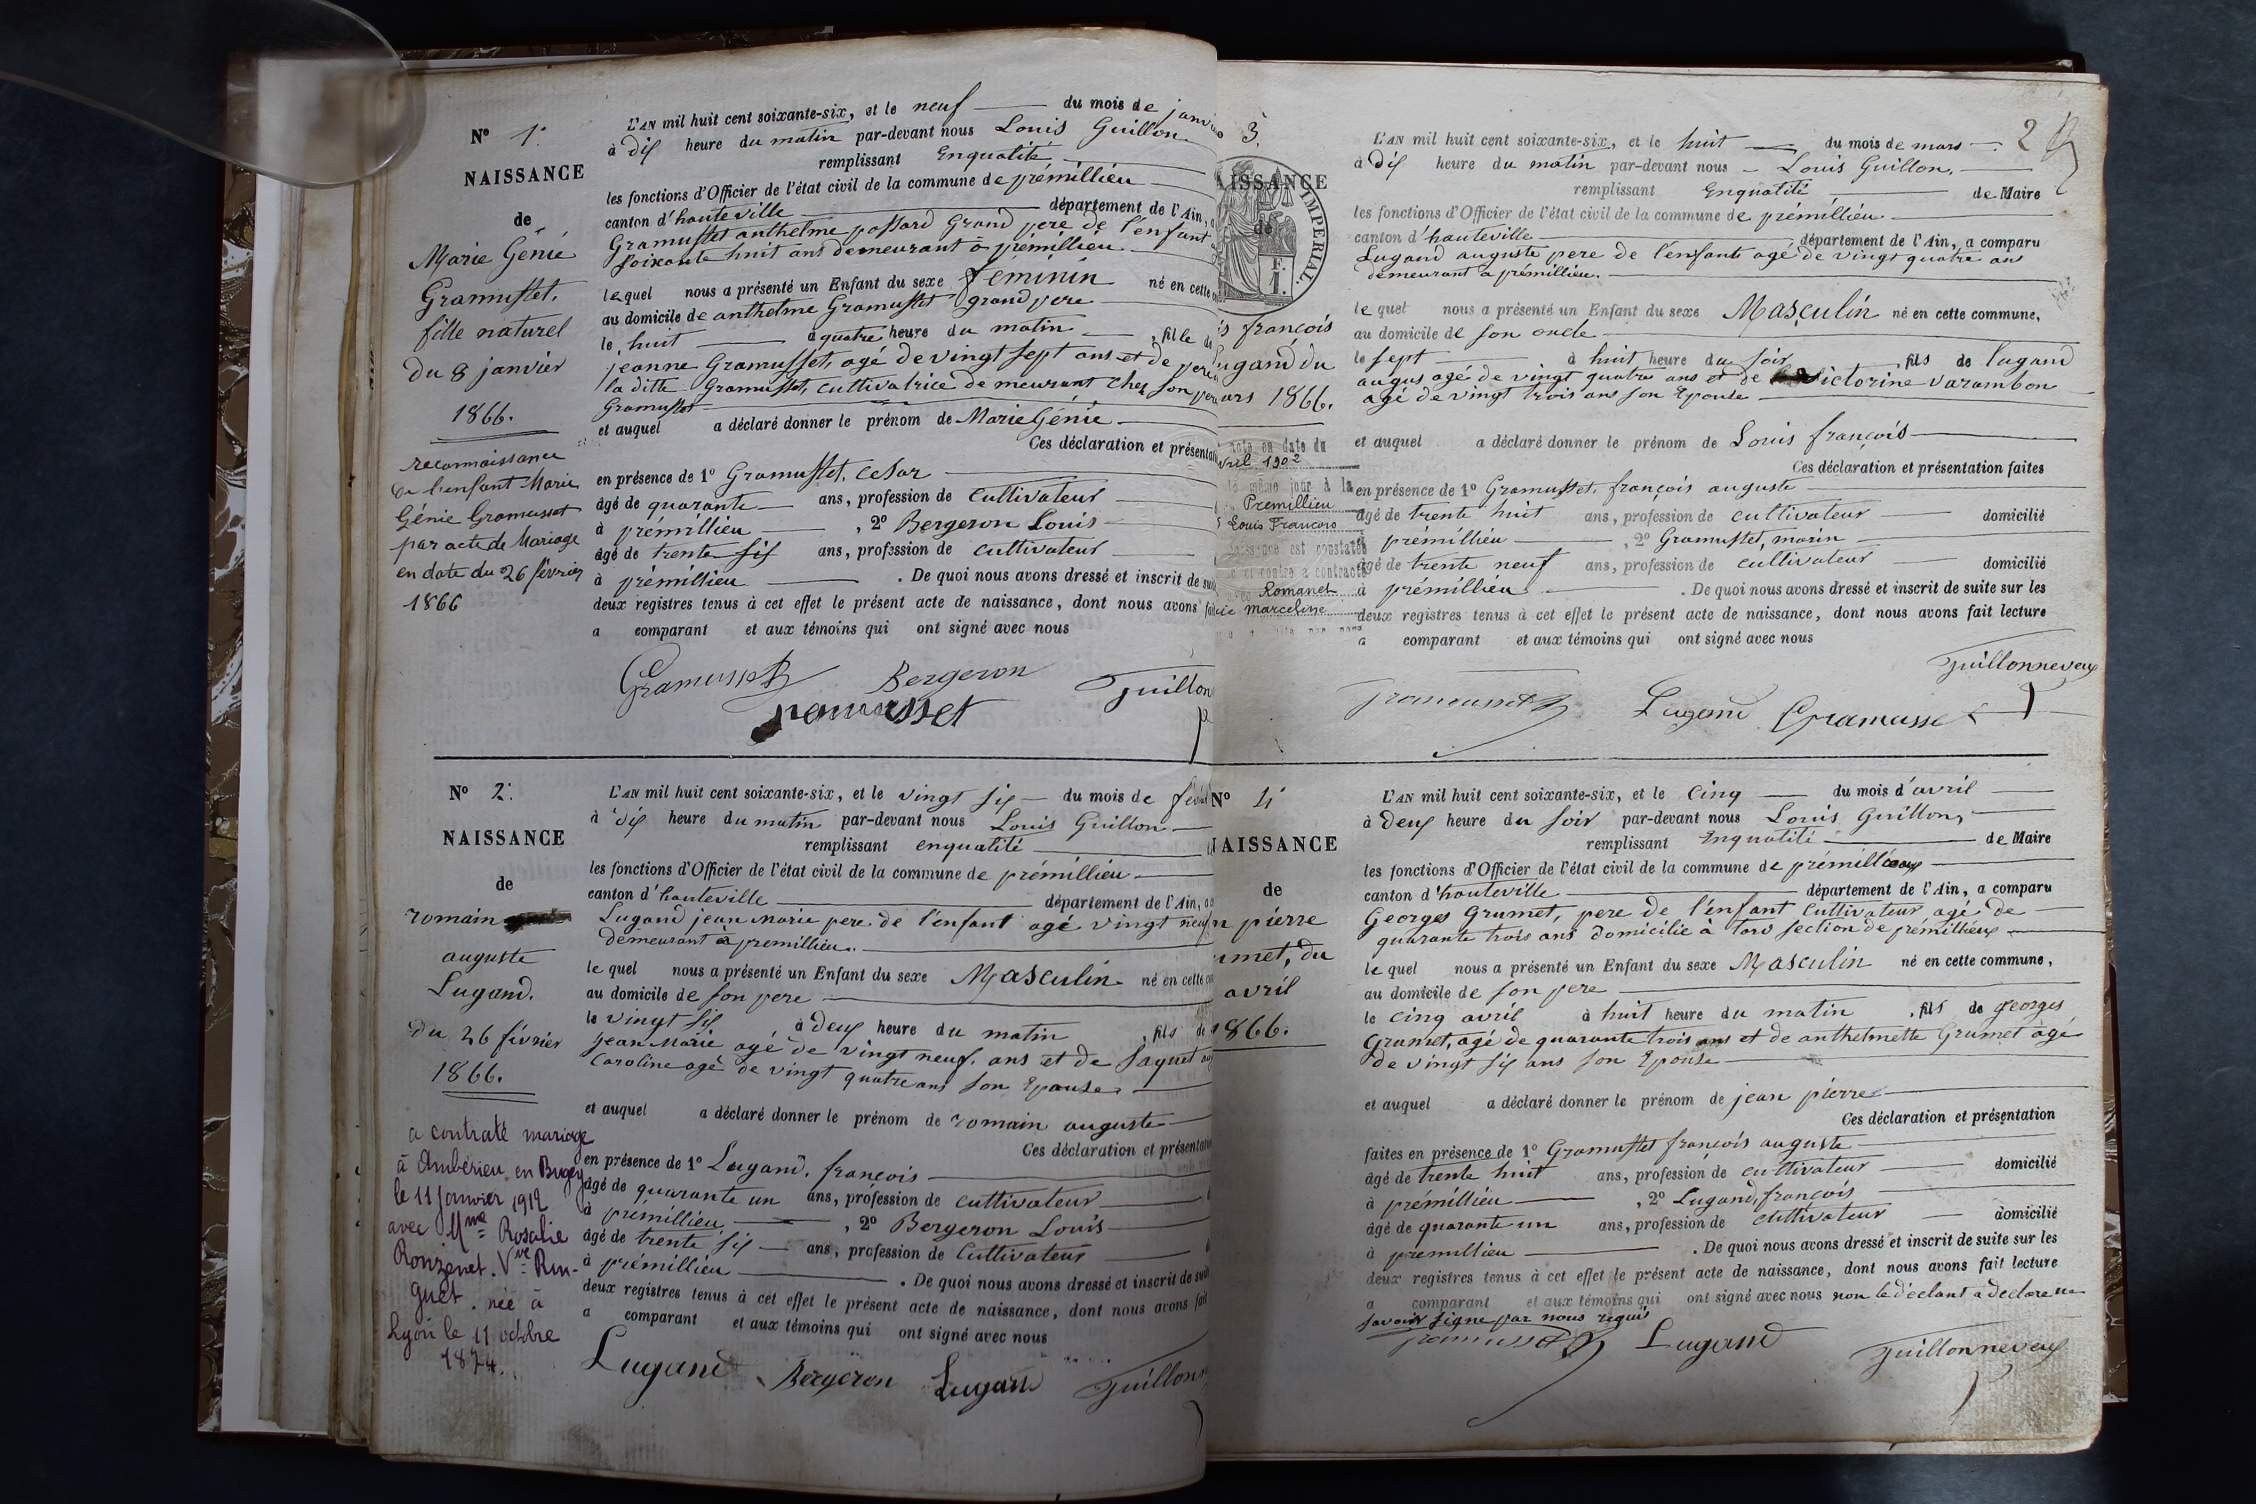 N° 1.
NAISSANCE
de
Marie Génie
Gramusset,
fille naturel
du 8 janvier
1866.
reconnaissance
de l'enfant Marie
Génie Gramusset
par acte de Mariage
en date du 26 février
1866
L'AN mil huit cent soixante-six, et le neuf du mois de janvier
à dix heure du matin par-devant nous Louis Guillon
remplissant Enqualité
les fonctions d'Officier de l'état civil de la commune de prémillieu
canton d'hauteville département de l'Ain, a
Gramusset anthelme passard Grand pere de l'enfant
soixante huit ans demeurant à prémillieu
lequel nous a présenté un Enfant du sexe féminin né en cette
au domicile de anthelme Gramusset grand pere
le huit à quatre heure du matin, fille de
jeanne Gramusset, agé de vingt sept ans et de pere
la ditte Gramusset, cultivatrice demeurant chez son pere
Gramusset
et auquel a déclaré donner le prénom de Marie Génie
Ces déclaration et présenta
en présence de 1° Gramusset, cesar
âgé de quarante ans, profession de cultivateur
à prémillieu, 2° Bergeron Louis
âgé de trente six ans, profession de cultivateur
à prémillieu. De quoi nous avons dressé et inscrit de sui
deux registres tenus à cet effet le présent acte de naissance, dont nous avons fai
a comparant et aux témoins qui ont signé avec nous
Gramusset Bergeron Guillon
gramusset
N° 2.
NAISSANCE
de
romain
auguste
Lugand.
du 26 février
1866.
a contraté mariage
à Ambérieu en Bugey
le 11 Janvier 1912
avec Mme Rosalie
Ronzenet. Vve Rin-
guet. née à
Lyon le 11 octobre
1874.
L'AN mil huit cent soixante-six, et le vingt six du mois de févri
à dix heure du matin par-devant nous Louis Guillon
remplissant enqualité
les fonctions d'Officier de l'état civil de la commune de prémillieu
canton d'hauteville département de l'Ain, a
Lugand jean marie pere de l'enfant agé vingt neuf
demeurant à premillieu.
le quel nous a présenté un Enfant du sexe Masculin né en cette
au domicile de son pere
le vingt six à deux heure du matin, fils de
jean Marie agé de vingt neuf, ans et de jaquet
Caroline agé de vingt quatre ans son Epouse
et auquel a déclaré donner le prénom de romain auguste
Ces déclaration et présenta
en présence de 1° Lugand, françois
âgé de quarante un ans, profession de cultivateur
à prémillieu, 2° Bergeron Louis
âgé de trente six ans, profession de cultivateur
à prémillieu. De quoi nous avons dressé et inscrit de sui
deux registres tenus à cet effet le présent acte de naissance, dont nous avons fait
a comparant et aux témoins qui ont signé avec nous
Lugand Bergeron Lugand Guillon
3.
AISSANCE
de
IMPERIAL.
F.
1.
is françois
ugand du
ars 1866.
acte en date du
vril 1902
même jour à la
Premillieu
Louis François
naissance est constatée
contre a contracté
Romanet
ie marceline
2
L'AN mil huit cent soixante-six, et le huit du mois de mars
à dix heure du matin par-devant nous Louis Guillon.
remplissant Enqualité de Maire
les fonctions d'Officier de l'état civil de la commune de prémillieu
canton d'hauteville département de l'Ain, a comparu
Lugand auguste pere de l'enfant agé de vingt quatre ans
demeurant a prémillieu.
le quel nous a présenté un Enfant du sexe Masculin né en cette commune,
au domicile de son oncle
le sept à huit heure du soir, fils de lugand
augus agé de vingt quatre ans et de victorine varambon
agé de vingt trois ans son Epouse
et auquel a déclaré donner le prénom de Louis françois
Ces déclaration et présentation faites
en présence de 1° Gramusset, françois auguste
âgé de trente huit ans, profession de cultivateur domicilié
prémillieu, 2° Gramusset, marin
âgé de trente neuf ans, profession de cultivateur domicilié
à prémillieu. De quoi nous avons dressé et inscrit de suite sur les
deux registres tenus à cet effet le présent acte de naissance, dont nous avons fait lecture
a comparant et aux témoins qui ont signé avec nous
Guillonneveux
Gramusset Lugand Gramusset
N° 4
NAISSANCE
de
n pierre
umet, du
avril
1866.
L'AN mil huit cent soixante-six, et le cinq du mois d'avril
à deux heure du soir par-devant nous Louis Guillon,
remplissant Enqualité de Maire
les fonctions d'Officier de l'état civil de la commune de prémillieu
canton d'hauteville département de l'Ain, a comparu
Georges Grumet, pere de l'enfant Cultivateur agé de
quarante trois ans domicilié à section de prémillieu
le quel nous a présenté un Enfant du sexe Masculin né en cette commune,
au domicile de son pere
le cinq avril à huit heure du matin, fils de georges
Grumet, agé de quarante trois ans et de anthelmette Grumet agé
de vingt six ans son Epouse
et auquel a déclaré donner le prénom de jean pierre
Ces déclaration et présentation
faites en présence de 1° Gramusset françois auguste
âgé de trente huit ans, profession de cultivateur domicilié
à prémillieu, 2° Lugand, françois
âgé de quarante un ans, profession de cultivateur domicilié
à premillieu. De quoi nous avons dressé et inscrit de suite sur les
deux registres tenus à cet effet le présent acte de naissance, dont nous avons fait lecture
a comparant et aux témoins qui ont signé avec nous non le déclant a déclare ne
savoir signe par nous requis
Gramusset Lugand Guillonneveux